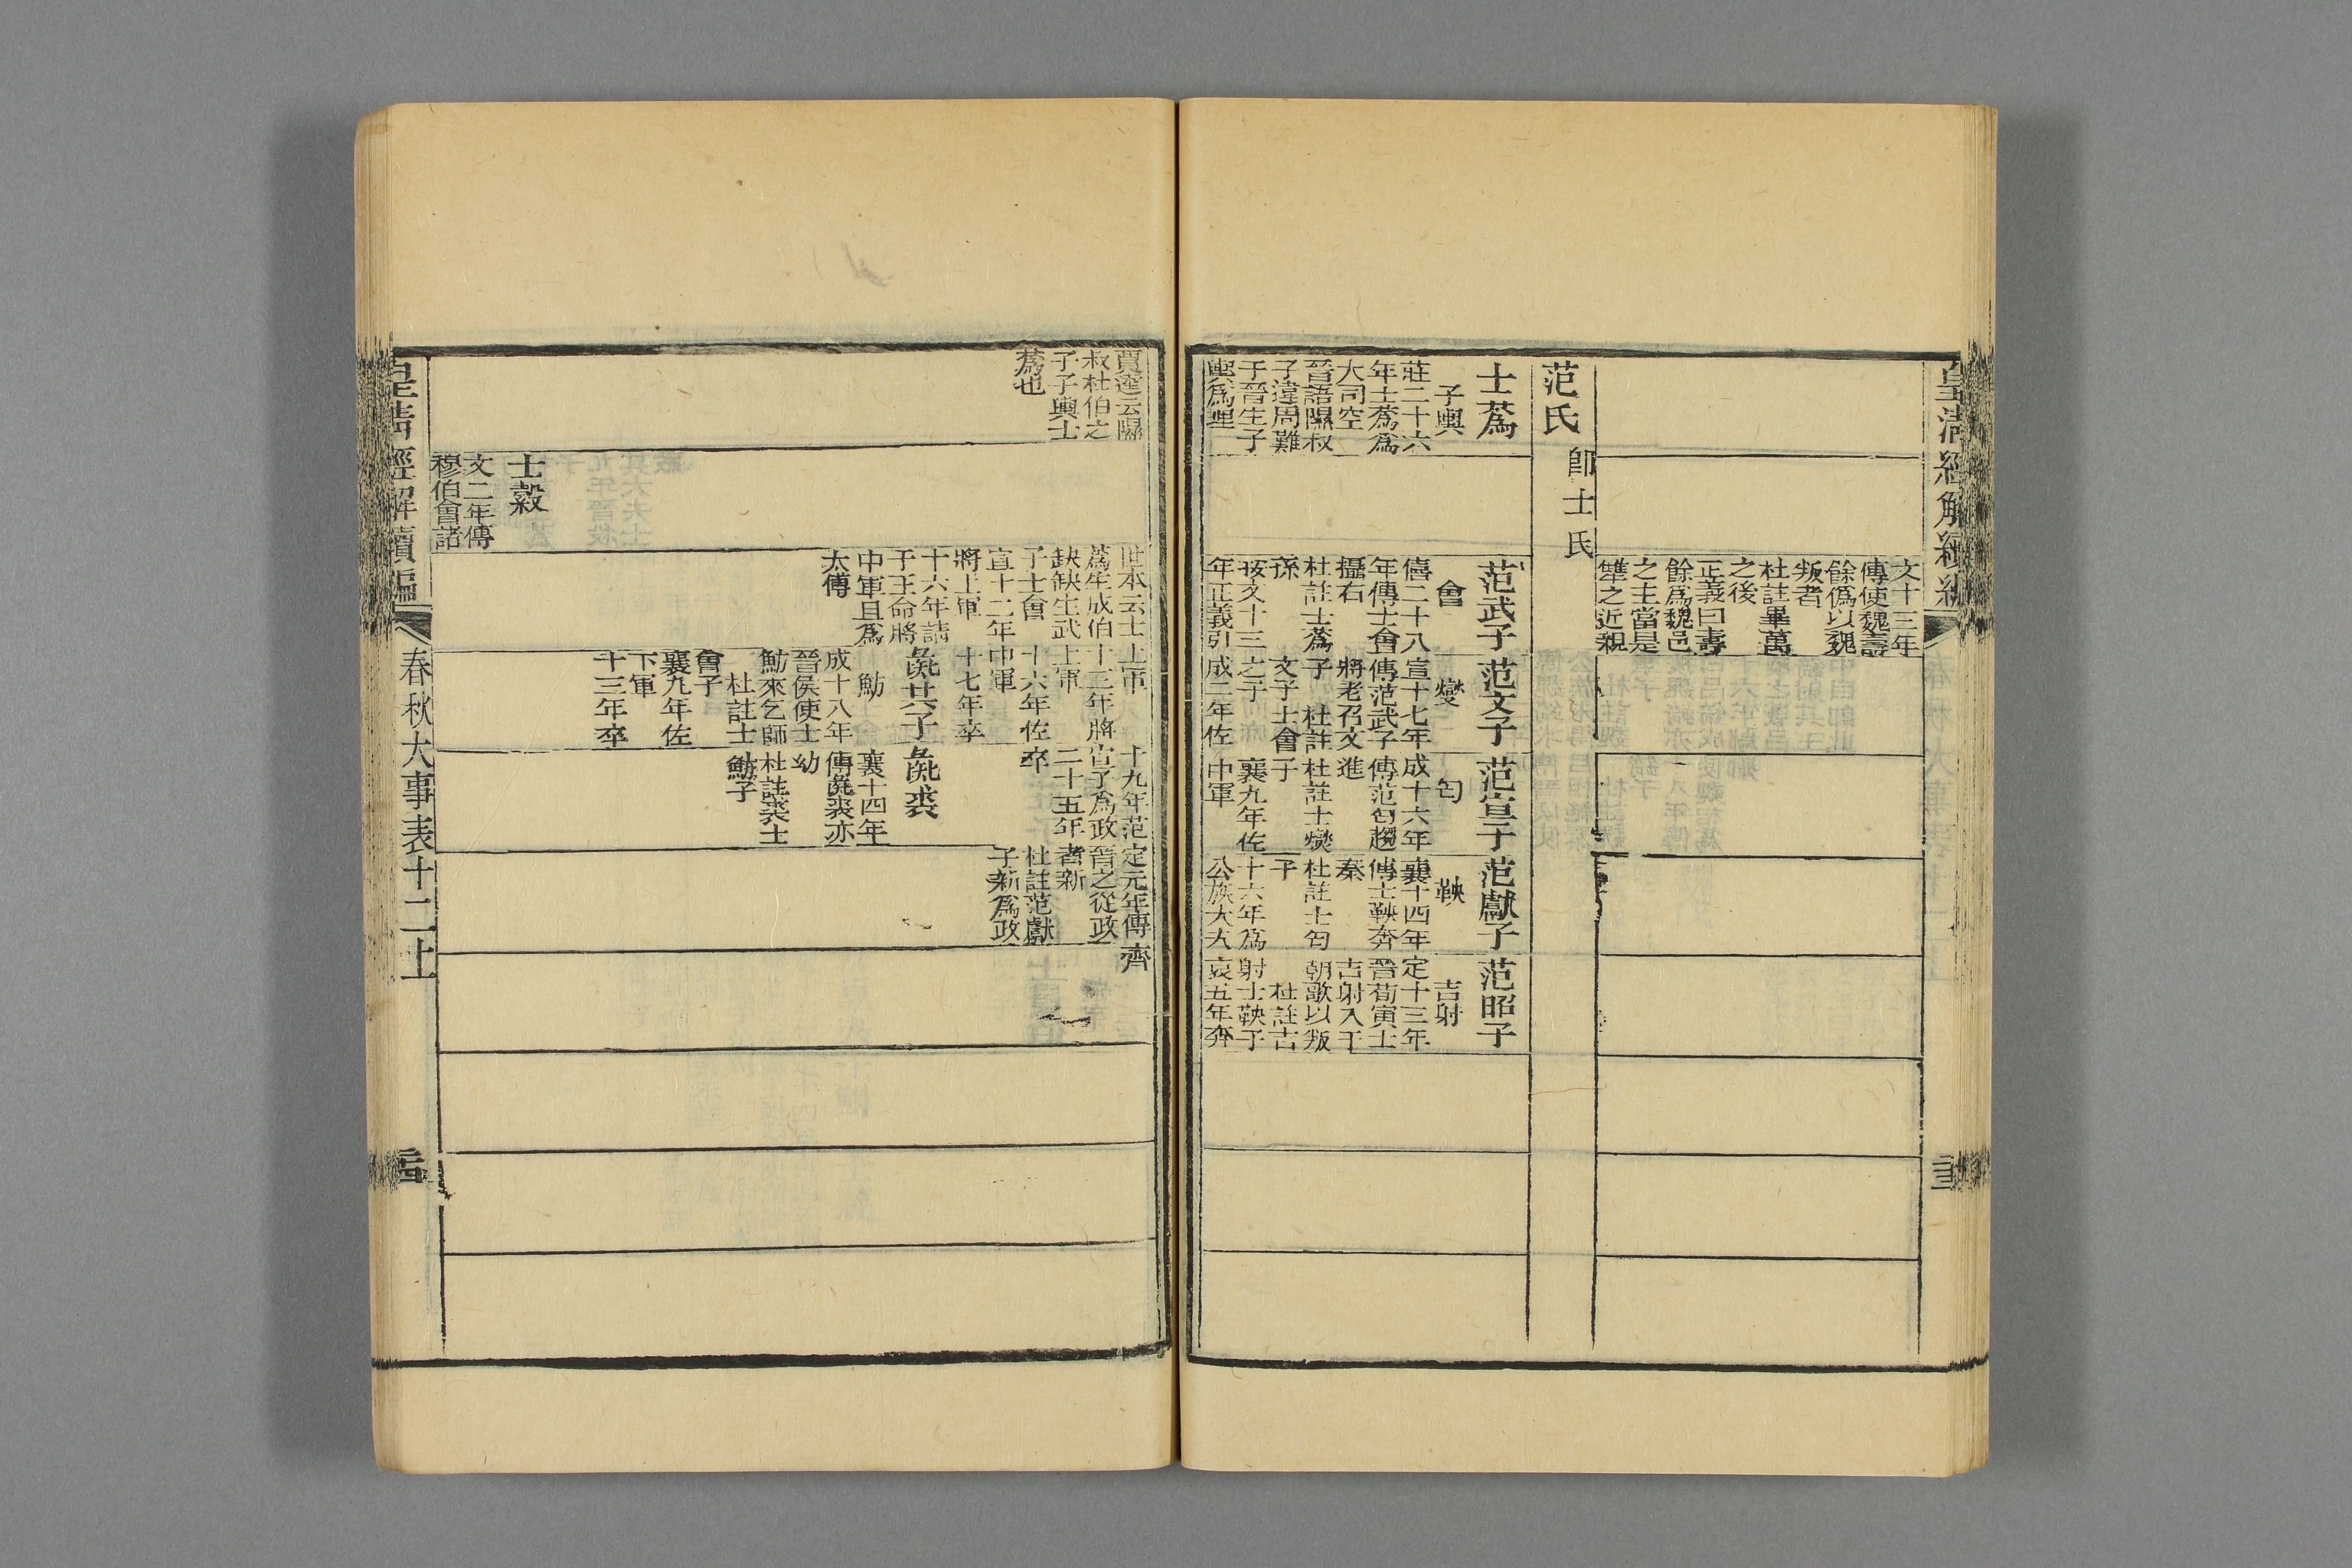 皇清經解續編
文十三年
傳使魏壽
餘僞以魏
叛者
杜註畢萬
之後
正義曰壽
餘爲魏邑
之主當是
犨之近親
范氏
卽士氏
士蒍
子輿
莊二十六
年士蒍爲
大司空
晉語隰叔
子違周難
于晉生子
輿爲理
范武子
會
僖二十八
年傳士會
攝右
杜註士蒍
孫
按文十三
年正義引
范文子
燮
宣十七年
傳范武子
將老召文
子 杜註
文子士會
之子
成二年佐
范宣子
匄
成十六年
傳范匄趨
進
杜註士燮
子
襄九年佐
中軍
范獻子
鞅
襄十四年
傳士鞅奔
秦
杜註士匄
子
十六年爲
公族大夫
范昭子
吉射
定十三年
晉荀寅士
吉射入于
朝歌以叛
杜註吉
射士鞅子
哀五年奔
賈逵云隰
叔杜伯之
子子輿士
蒍也
世本云士
蒍生成伯
缺缺生武
子士會
宣十二年
將上軍
十六年請
于王命將
中軍且爲
太傅
上軍
十三年將
上軍
十六年佐
中軍
十七年卒
十九年范
宣子爲政
二十五年
卒
定元年傳
晉之從政
者新
杜註范獻
子新爲政
齊
彘共子
魴
成十八年
晉侯使士
魴來乞師
杜註士
會子
襄九年佐
下軍
十三年卒
彘裘
襄十四年
傳彘裘亦
幼
杜註裘士
魴子
士縠
文二年傳
穆伯會諸
皇清經解續編
春秋大事表十二上